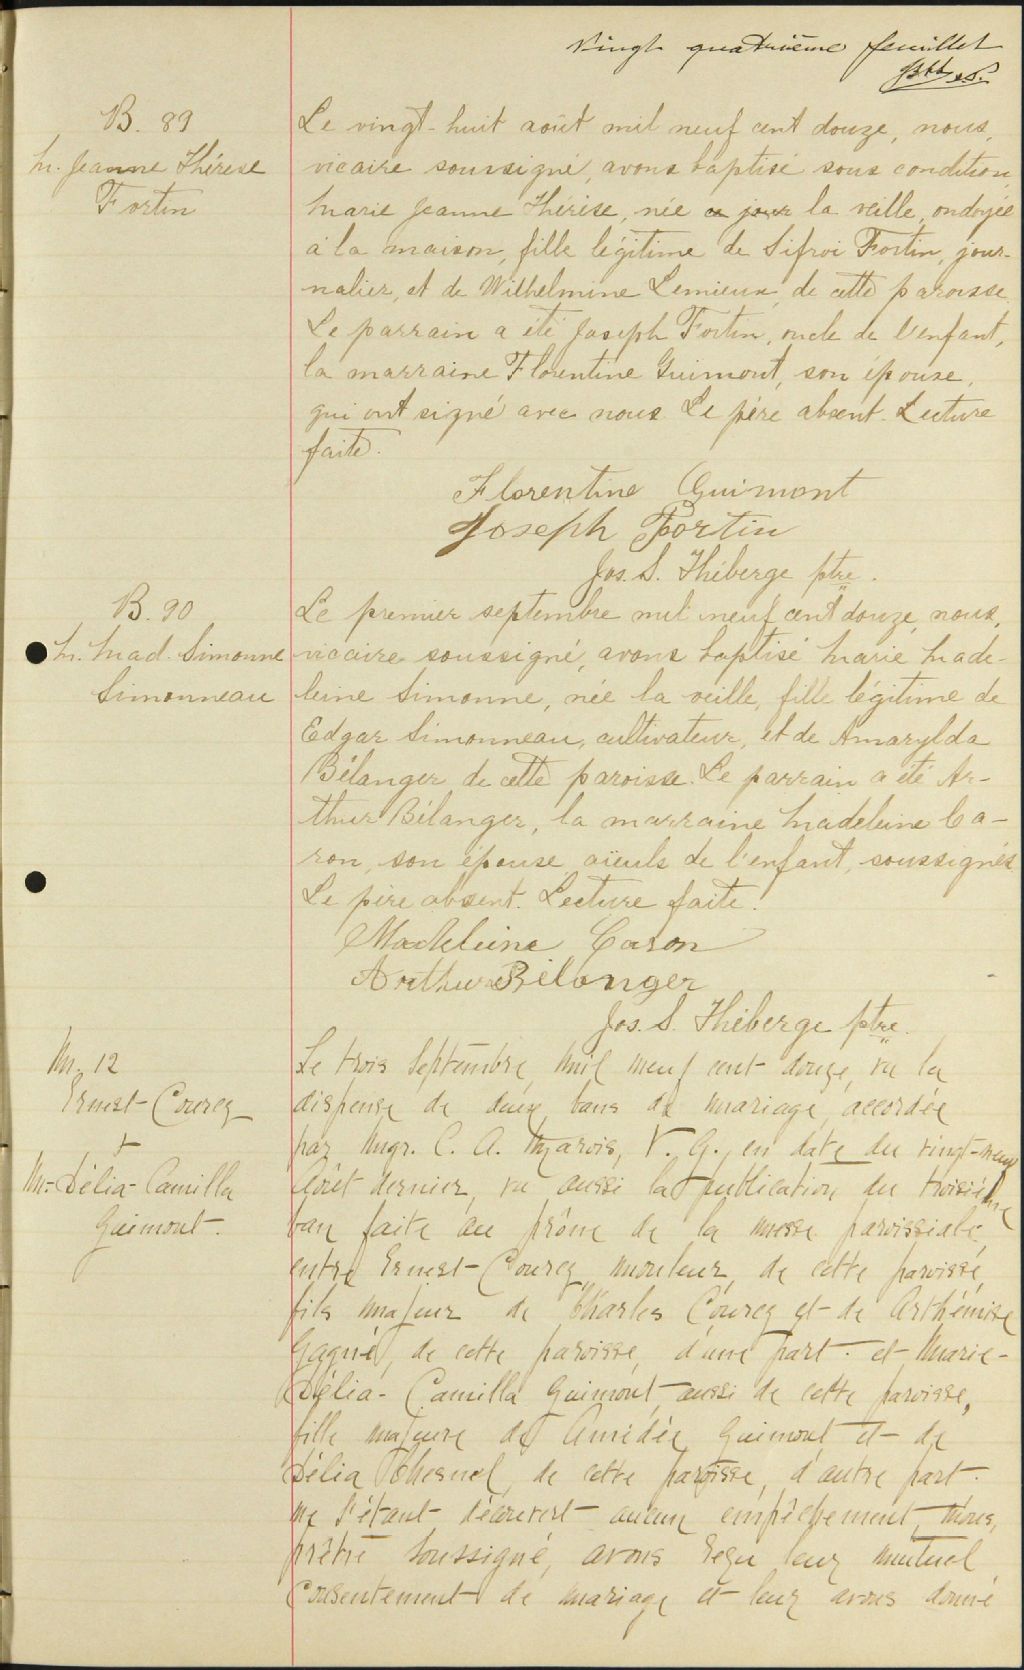 Vingt quatrième feuillet
B. 89
M. Jeanne Thérèse
Fortin
Le vingt-huit août mil neuf cent douze, nous,
vicaire soussigné, avons baptisé sous condition
Marie Jeanne Thérèse, née ce jour la veille, ondoyée
à la maison, fille légitime de Sifroi Fortin, jour-
nalier, et de Wilhelmine Lemieux, de cette paroisse.
Le parrain a été Joseph Fortin, oncle de l'enfant,
la marraine Florentine Guimont, son épouse,
qui ont signé avec nous. Le père absent. Lecture
faite.
Florentine Guimont
Joseph Fortin
Jos. S. Théberge ptre.
B. 90
M. Mad. Simonne
Simonneau
Le premier septembre mil neuf cent douze, nous,
vicaire soussigné, avons baptisé Marie Made-
leine Simonne, née la veille, fille légitime de
Edgar Simonneau, cultivateur, et de Amarylda
Bélanger de cette paroisse. Le parrain a été Ar-
thur Bélanger, la marraine Madeleine Ca-
ron, son épouse aïeuls de l'enfant, soussignés
Le père absent. Lecture faite.
Madeleine Caron
Arthur Bélanger
Jos. S. Théberge ptre.
M. 12
Ernest Courcy
+
M. Délia Camilla
Guimont.
Le trois Septembre, mil neuf cent douze, vu la
dispense de deux bans de mariage accordée
par Mgr. C. A. Marois, V. G., en date du vingt-neuf
Août dernier, vu aussi la publication du troisième
ban faite au prône de la messe paroissiale,
entre Ernest Courcy, mouleur, de cette paroisse,
fils majeur de Charles Courcy et de Arthémise
Gagné, de cette paroisse, d'une part. et Marie-
Délia-Camilla Guimont aussi de cette paroisse,
fille majeure de Amédée Guimont et de
Délia Chesnel, de cette paroisse, d'autre part.
ne s'étant découvert aucun empêchement, Nous,
prêtre soussigné, avons reçu leur mutuel
Consentement de mariage et leur avons donné